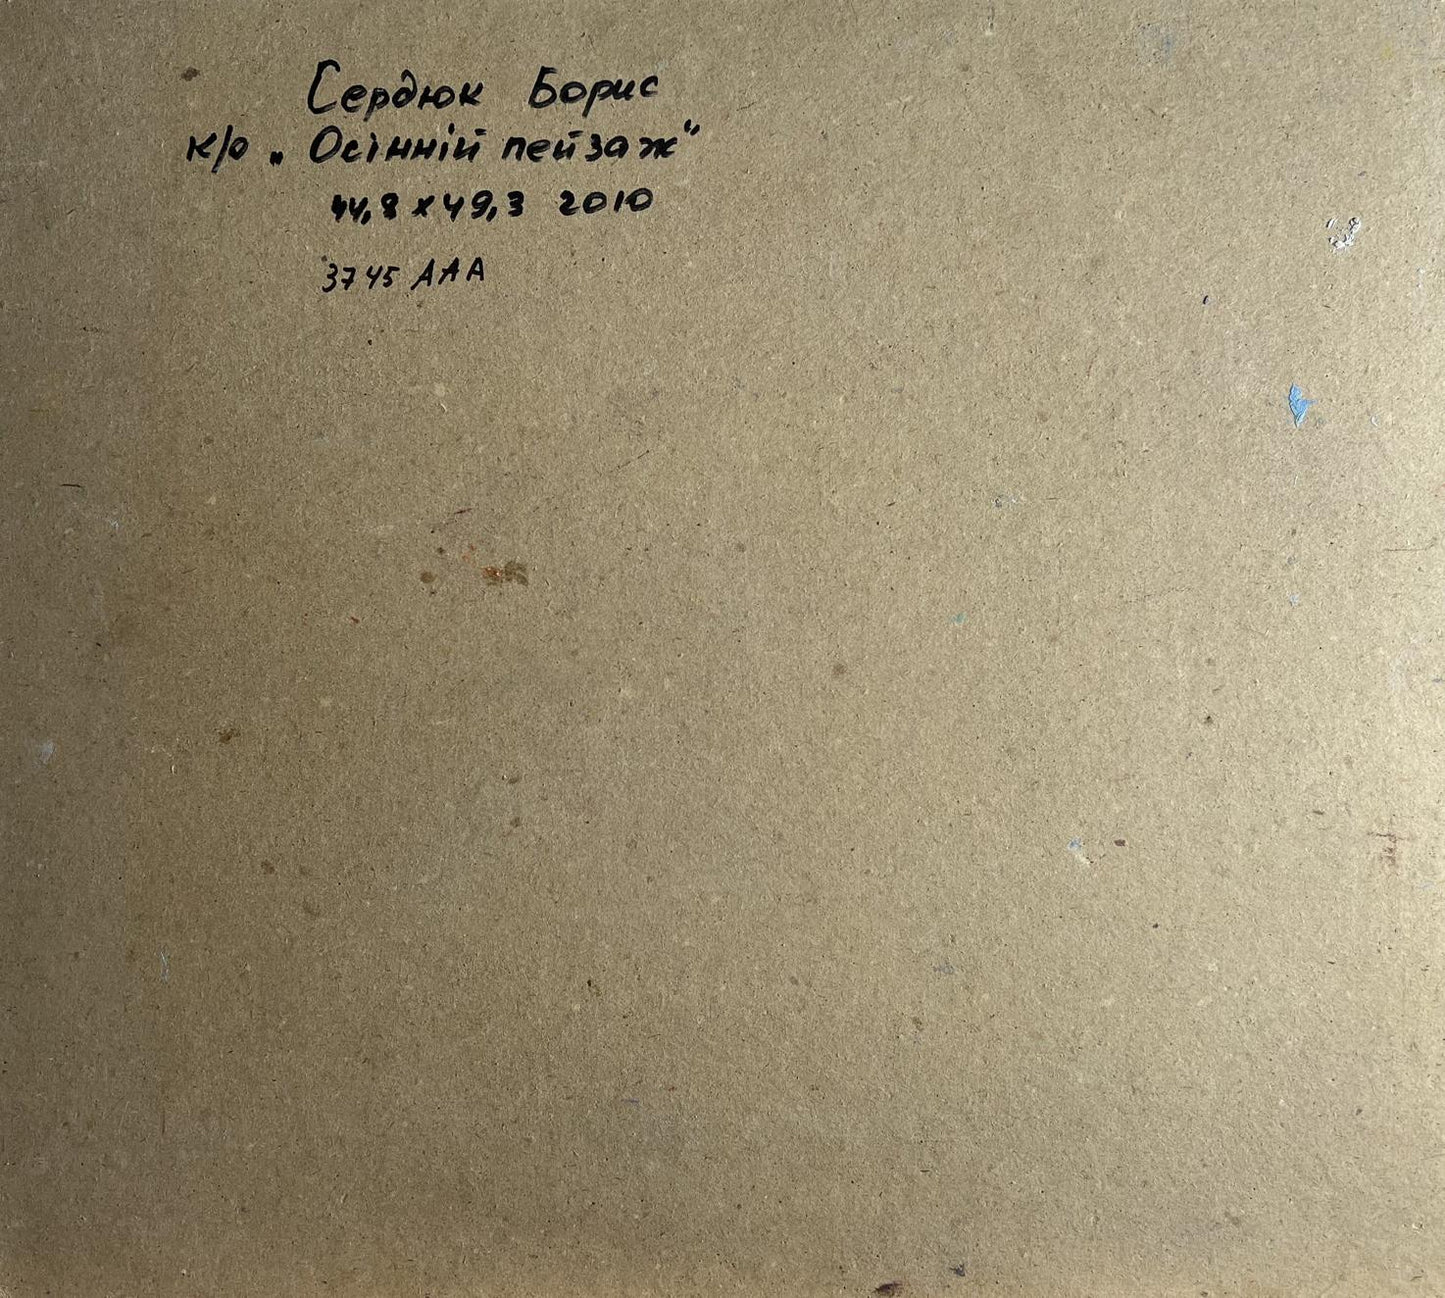 Сердюк Борис
к/о „Осінній пейзаж“
44,8 х 49,3 2010
3745 ААА